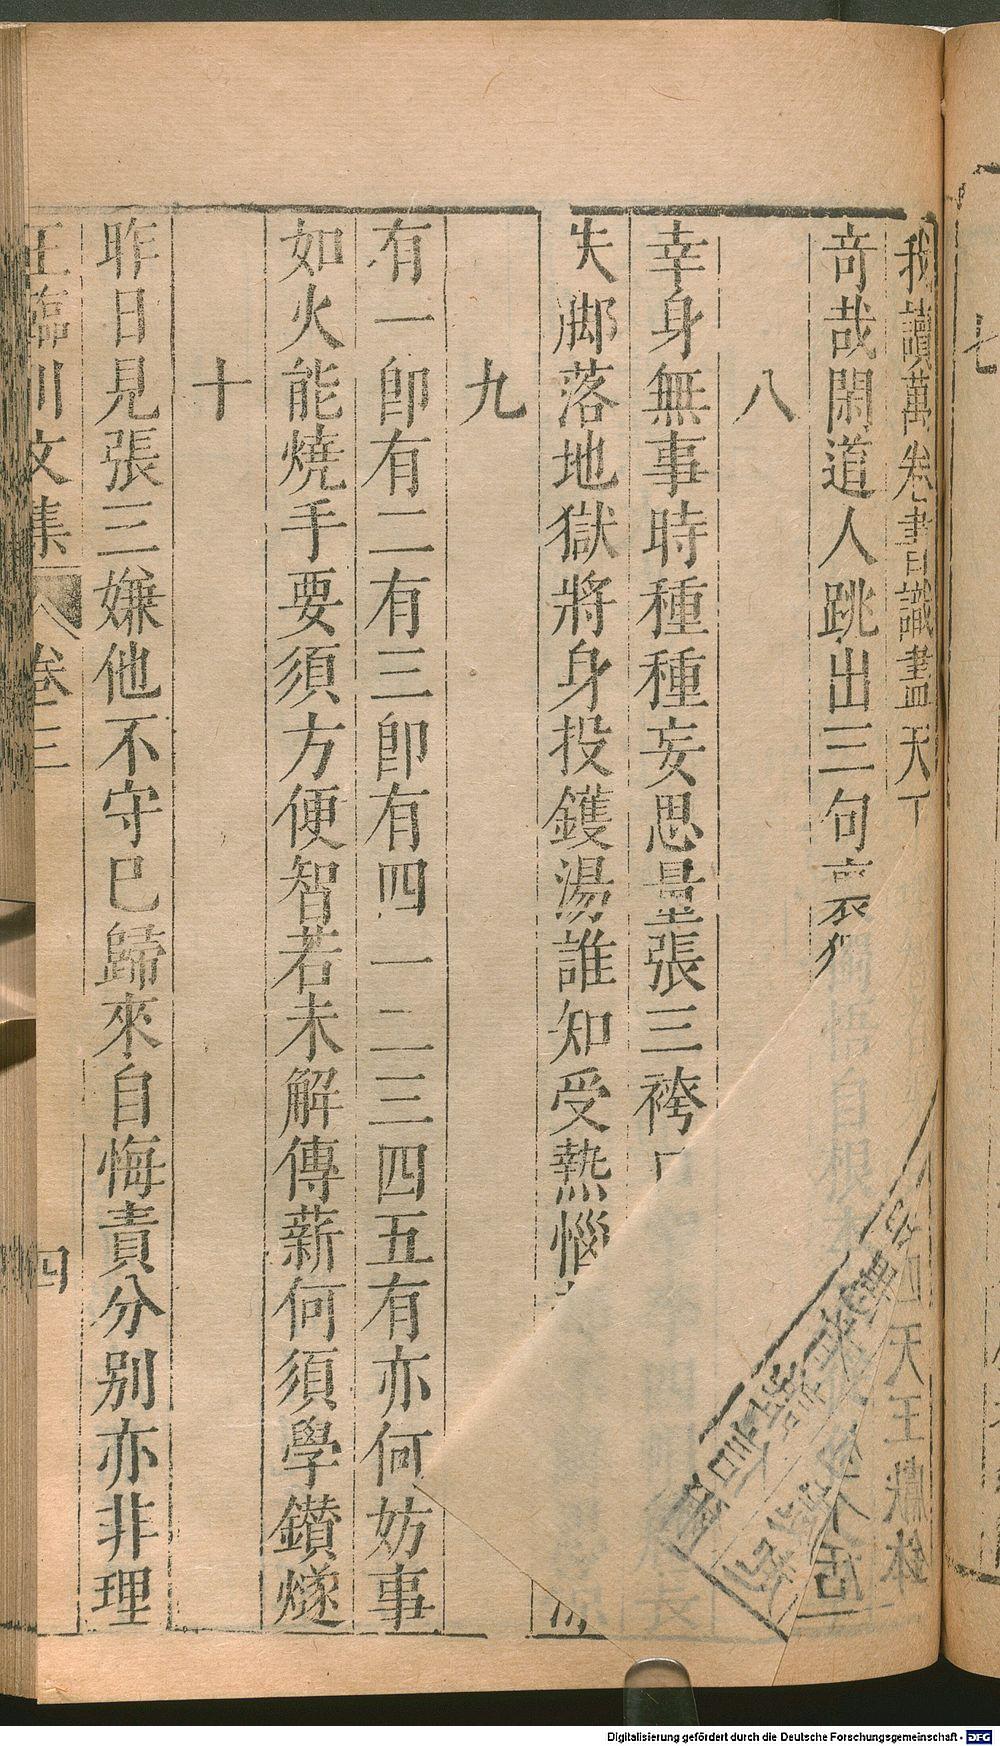 我讀萬卷書識盡天
奇哉閑道人跳出三句裏
八
幸身無事時種種妄思量張三袴
失脚落地獄將身投鑊湯誰知受熱惱
九
有一卽有二有三卽有四一二三四五有亦何妨事
如火能燒手要須方便智若未解傳薪何須學鑽燧
十
昨日見張三嫌他不守已歸來自悔責分别亦非理
王臨川文集 卷三 四
七
四天王獻鉢
Digitalisierung gefördert durch die Deutsche Forschungsgemeinschaft - DFG